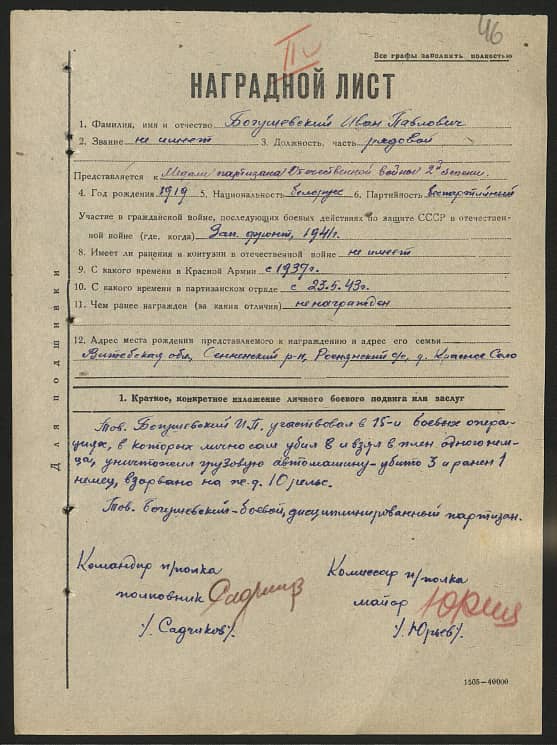 46
IV
Все графы заполнить полностью
НАГРАДНОЙ ЛИСТ
1. Фамилия, имя и отчество Богушевский Иван Павлович
2. Звание не имеет 3. Должность, часть рядовой
Представляется к Медали „партизана Отечественной войны" 2й степени.
4. Год рождения 1919 5. Национальность белорус 6. Партийность беспартийный
Участие в гражданской войне, последующих боевых действиях по защите СССР в отечествен-
ной войне (где, когда) Зап. фронт, 1941г.
8. Имеет ли ранения и контузии в отечественной войне не имеет
9. С какого времени в Красной Армии с 1937г.
10. С какого времени в партизанском отряде с 23.5.43г.
11. Чем ранее награжден (за какия отличия) ненагражден
12. Адрес места рождения представляемого к награждению и адрес его семьи
Витебская обл, Сенненский р-н, с/с, д. Красное Село
Для подшивки
1. Краткое, конкретное изложение личного боевого подвига или заслуг
Тов. Богушевский И.П. участвовал в 15-и боевых опера-
циях, в которых лично сам убил 8 и взял в плен одного нем-
ца, уничтожил грузовую автомашину-убито 3 и ранен 1
немец, взорвано на ж.д. 10 рельс.
Тов. Богушевский-боевой, дисциплинированный партизан.
Командир п/полка
полковник
/. Садчиков/.
Комиссар п/полка
майор
/. Юрьев/.
1505—40000